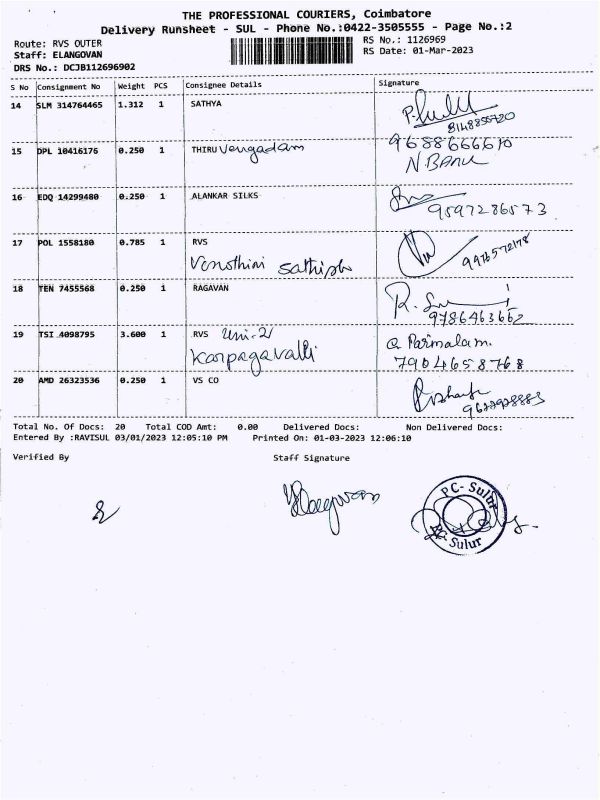 THE PROFESSIONAL COURIERS, Coimbatore
Delivery Runsheet - SUL - Phone No.:0422-3505555 - Page No.:2
Route: RVS OUTER RS No.: 1126969
Staff: ELANGOVAN RS Date: 01-Mar-2023
DRS No.: DCJB112696902
S No Consignment No Weight PCS Consignee Details Signature
14 SLM 314764465 1.312 1 SATHYA
15 DPL 10416176 0.250 1 THIRU Vengadam 9688666610
N. BANU
16 EDQ 14299480 0.250 1 ALANKAR SILKS
9597286573
17 POL 1558180 0.785 1 RVS
Venothini Sathish 9976572178
18 TEN 7455568 0.250 1 RAGAVAN
9786463662
19 TSI 4098795 3.600 1 RVS Uni-2 Parimalam.
Karpagavalli 7904658768
20 AMD 26323536 0.250 1 VS CO
Total No. Of Docs: 20 Total COD Amt: 0.00 Delivered Docs: Non Delivered Docs:
Entered By :RAVISUL 03/01/2023 12:05:10 PM Printed On: 01-03-2023 12:06:10
Verified By Staff Signature
Elangovan
PC- Sulur
Sulur